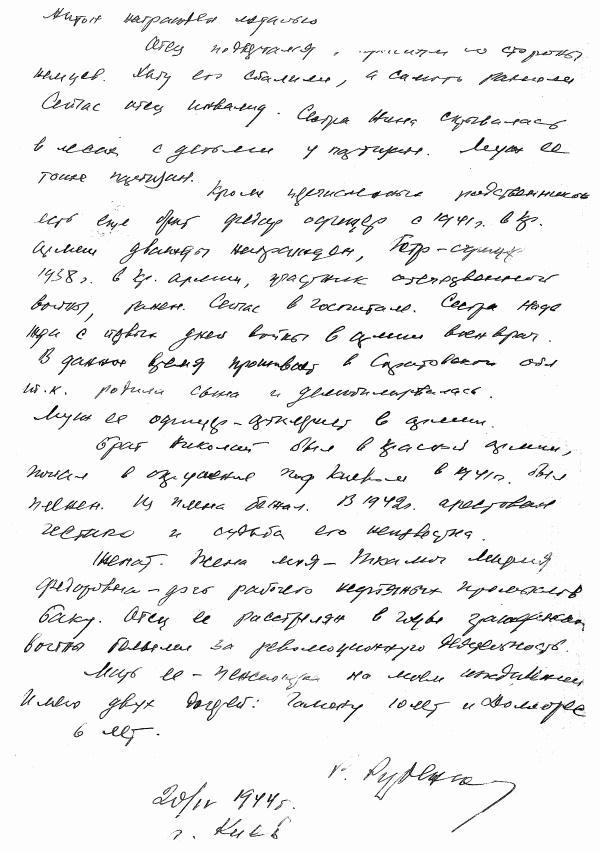 Антон награжден медалью
Отец подвергался со стороны
немцев. Хату его спалили, а самого ранили
Сейчас отец инвалид. Сестра Нина скрывалась
в лесах с детьми у партизан. Муж ее
тоже партизан.
Кроме перечисленных родственников
есть еще брат Федор офицер с 1941 г. в Кр.
армии дважды награжден, Петр-
1938 г. в Кр. армии, участник отечественной
войны, ранен. Сейчас в госпитале. Сестра Надя
с первых дней войны в армии военврач.
В данное время проживает в Саратовской обл
т.к. родила сына и демобилизовалась.
Муж ее офицер-артиллерист в армии.
Брат Николай был в Красной армии,
попал в окружение под Киевом в 1941 г. был
пленен. Из плена бежал. В 1942 г. арестован
гестапо и судьба его неизвестна.
Женат. Жена моя- Мария
Федоровна-дочь рабочего нефтяных промыслов
Баку. Отец ее расстрелян в годы гражданской
войны белыми за революционную деятельность.
Мать ее-пенсионерка на моем иждивении
Имею двух дочерей: Тамару 10 лет и Долорес
6 лет.
20/IV 1944 г.
г. Киев